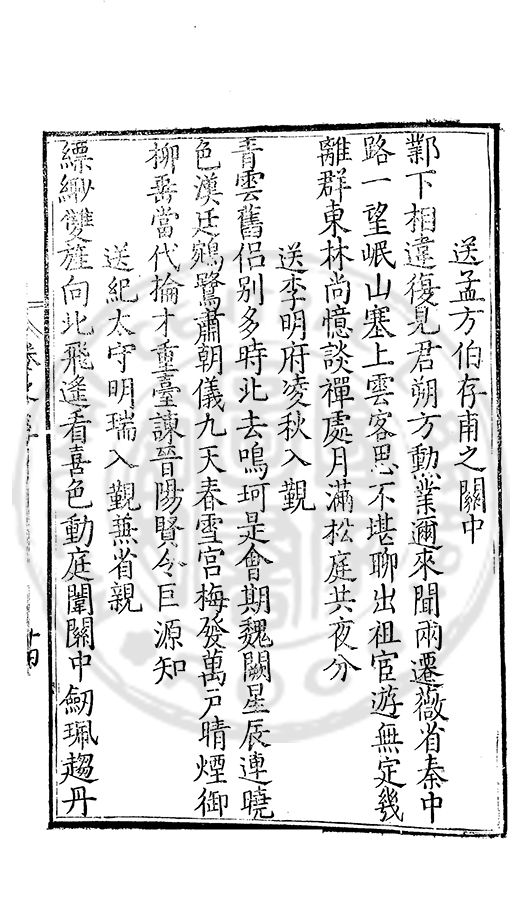 送孟方伯存甫之關中
鄴下相違復見君朔方勳業邇來聞兩遷薇省秦中
路一望岷山塞上雲客思不堪聊出祖宦游無定幾
離群東林尚憶談禪處月滿松庭共夜分
送李明府凌秋入覲
青雲舊侶別多時北去鳴珂是會期魏闕星辰連曉
色漢廷鵷鷺肅朝儀九天春雪宮梅發萬戶晴煙御
柳垂當代掄才重臺諫晉陽賢令巨源知
送紀太守明瑞入覲兼省親
縹緲雙旌向北飛遙看喜色動庭闈關中劒珮趨丹